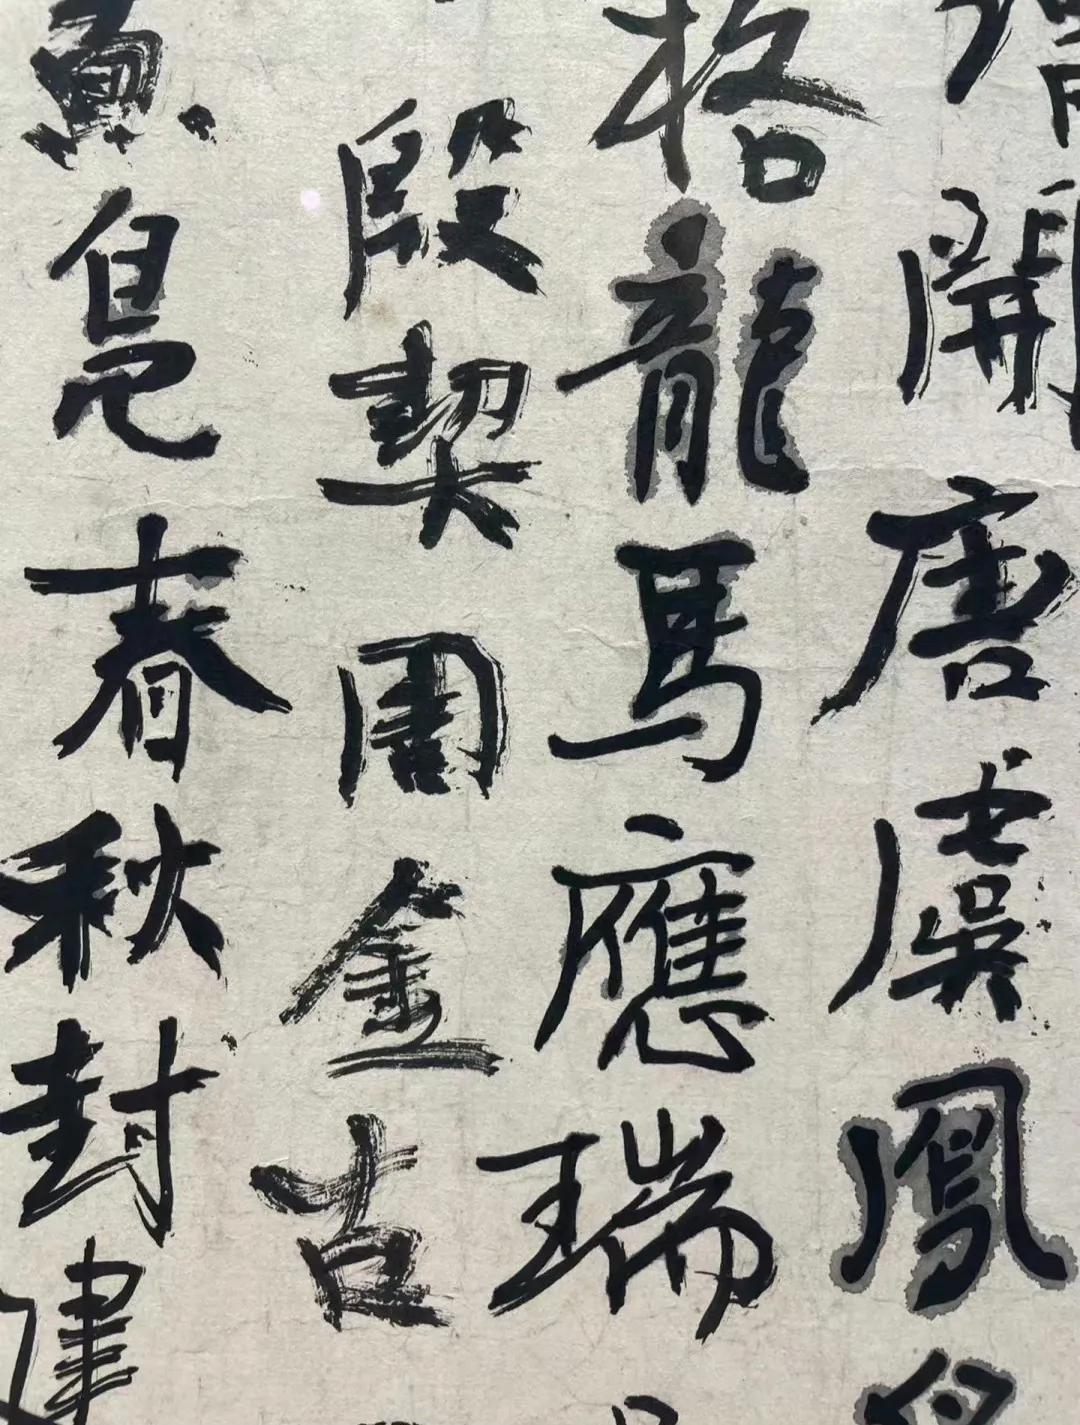 開唐虞鳳
格龍馬應瑞
殷契周金古
魚鳧春秋封建